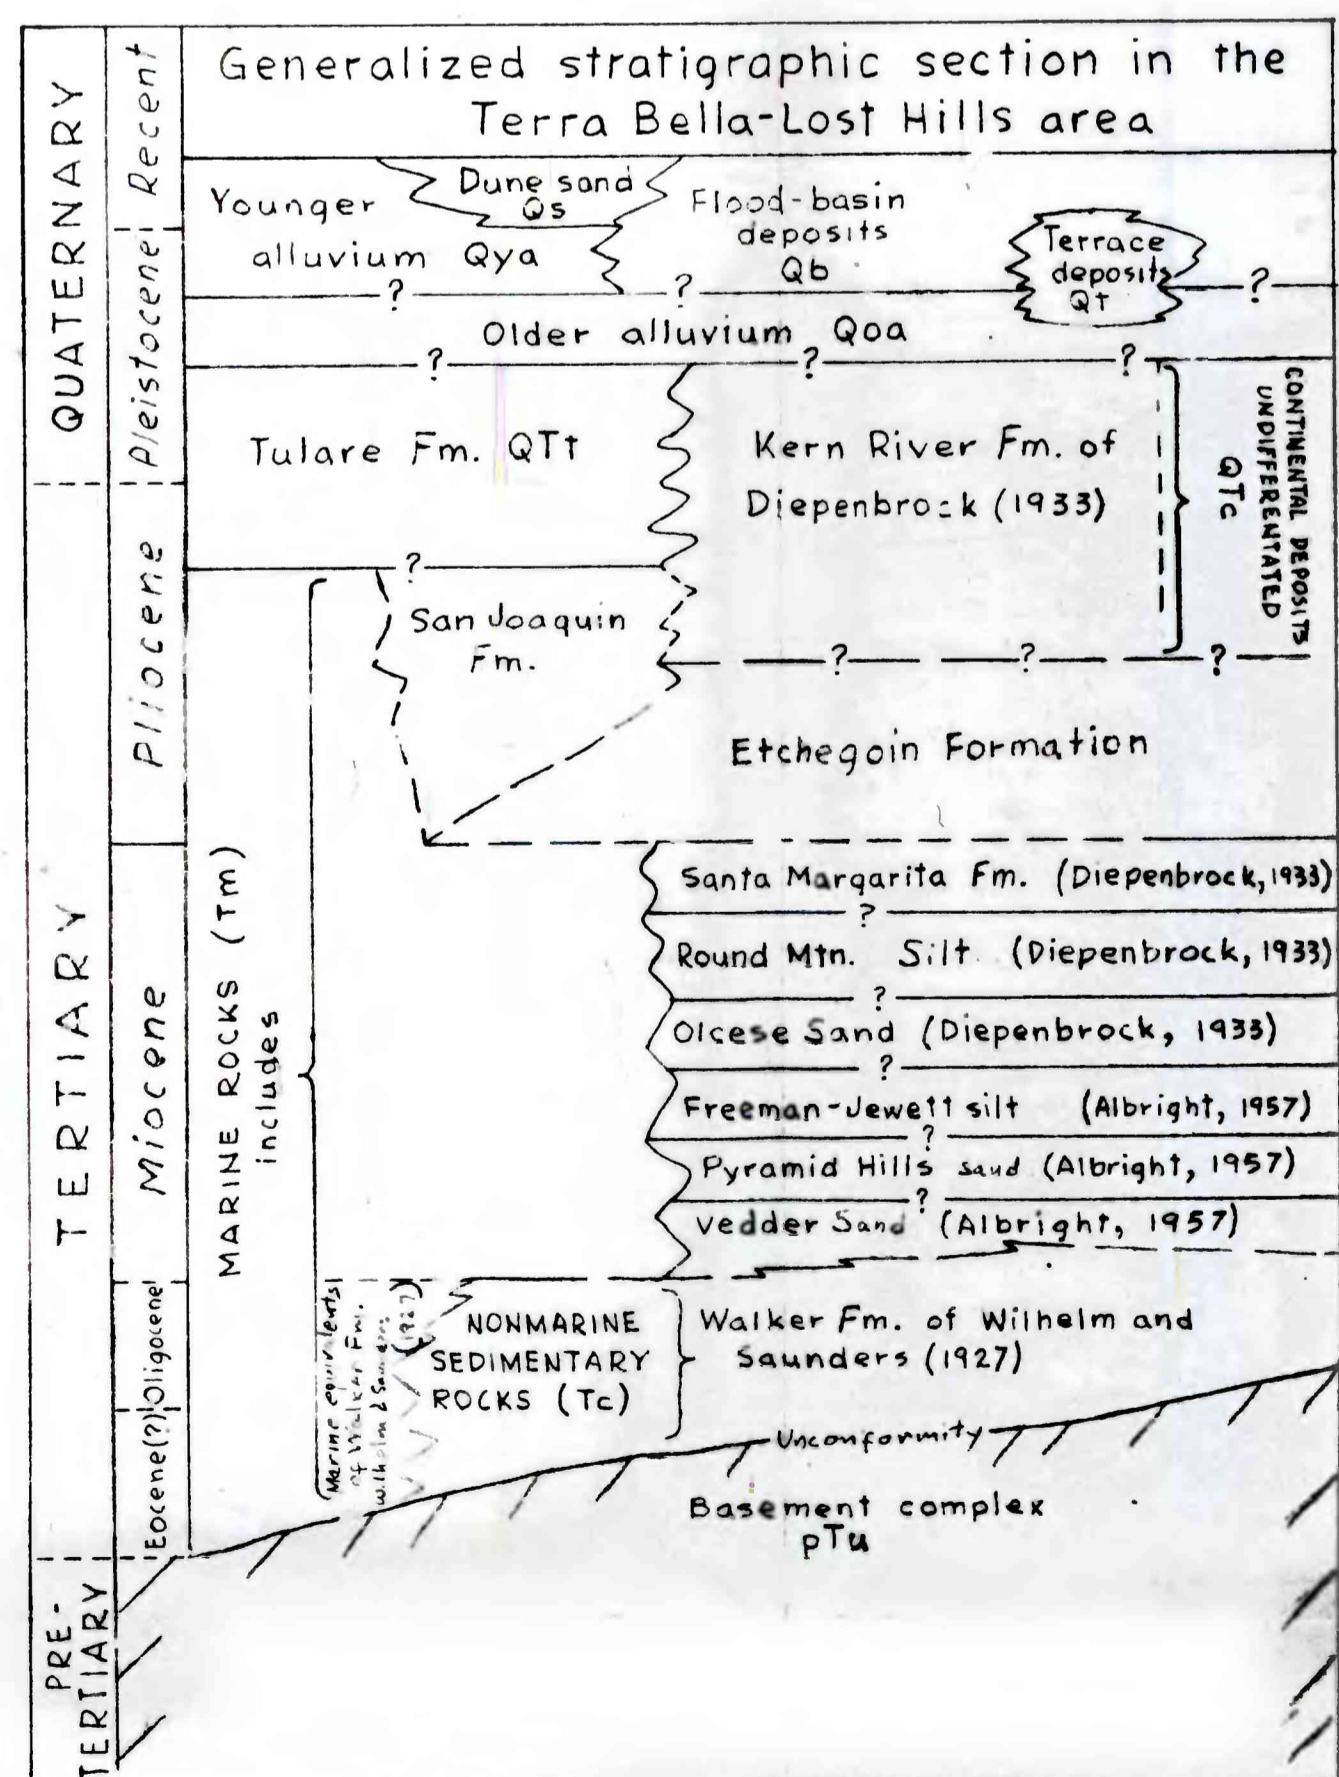 Generalized stratigraphic section in the
Terra Bella-Lost Hills area
QUATERNARY
Recent
Pleistocene
TERTIARY
Pliocene
Miocene
Oligocene
Eocene(?)
PRE-
TERTIARY
Younger
alluvium Qya
Dune sand
Qs
Flood-basin
deposits
Qb
Terrace
deposits
Qt
? ? ?
Older alluvium Qoa
? ? ?
Tulare Fm. QTt
Kern River Fm. of
Diepenbrock (1933)
CONTINENTAL DEPOSITS
UNDIFFERENTATED
QTc
?
San Joaquin
Fm.
? ? ?
Etchegoin Formation
MARINE ROCKS (Tm)
includes
Santa Margarita Fm. (Diepenbrock, 1933)
?
Round Mtn. Silt (Diepenbrock, 1933)
?
Olcese Sand (Diepenbrock, 1933)
?
Freeman-Jewett silt (Albright, 1957)
?
Pyramid Hills sand (Albright, 1957)
?
Vedder Sand (Albright, 1957)
Marine equivalents
of Walker Fm.
Wilhelm & Saunders
(1927)
NONMARINE
SEDIMENTARY
ROCKS (Tc)
Walker Fm. of Wilhelm and
Saunders (1927)
Unconformity
Basement complex
pTu